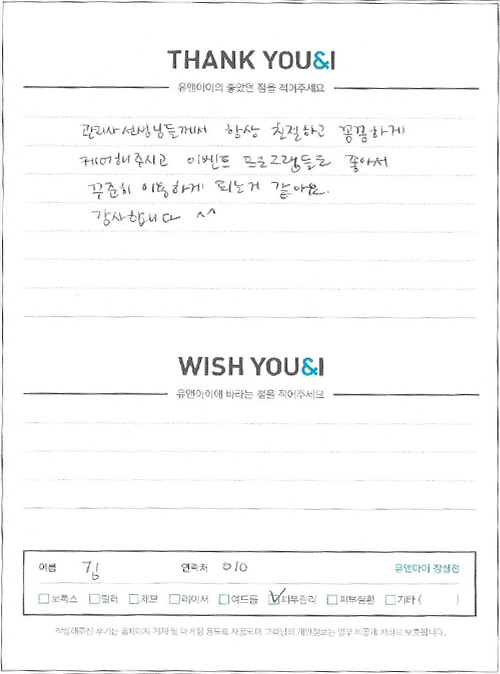 THANK YOU&I
유앤아이의 좋았던 점을 적어주세요
관리사선생님들께서 항상 친절하고 꼼꼼하게
케어해주시고 이벤트 프로그램들도 좋아서
꾸준히 이용하게 되는거 같아요.
감사합니다 ^^
WISH YOU&I
유앤아이에 바라는 점을 적어주세요
이름 김 연락처 010 유앤아이 잠실점
보톡스 필러 제모 레이저 여드름 피부관리 피부질환 기타 ( )
작성해주신 후기는 홈페이지 게재 및 마케팅 용도로 사용되며 고객님의 개인정보는 일부 비공개 처리로 보호됩니다.